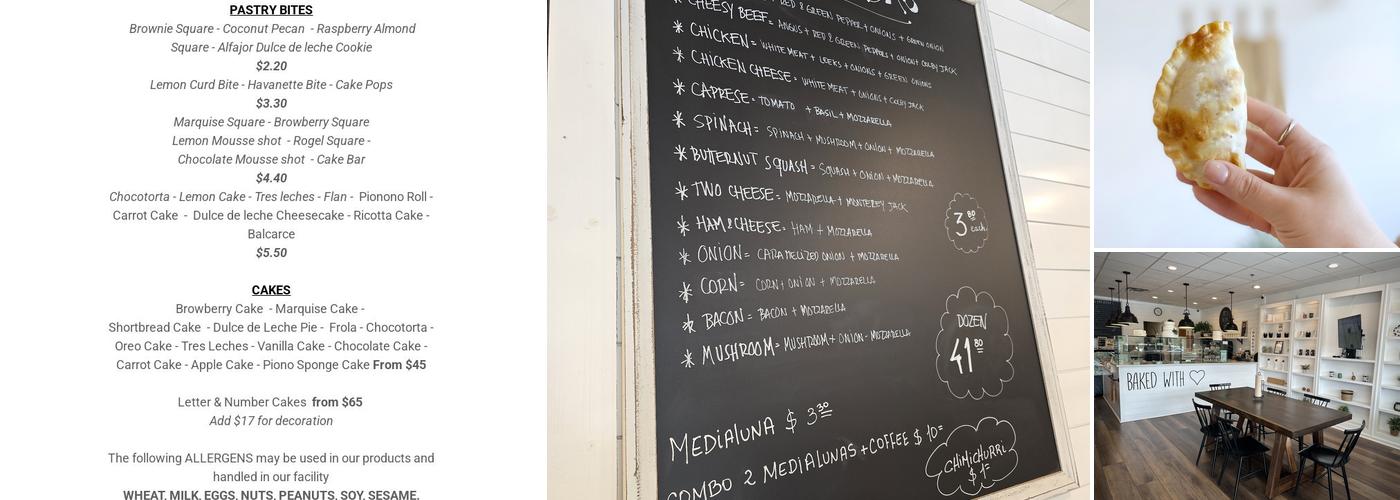 PASTRY BITES
Brownie Square - Coconut Pecan - Raspberry Almond
Square - Alfajor Dulce de leche Cookie
$2.20
Lemon Curd Bite - Havanette Bite - Cake Pops
$3.30
Marquise Square - Browberry Square
Lemon Mousse shot - Rogel Square -
Chocolate Mousse shot - Cake Bar
$4.40
Chocotorta - Lemon Cake - Tres leches - Flan - Pionono Roll -
Carrot Cake - Dulce de leche Cheesecake - Ricotta Cake -
Balcarce
$5.50
CAKES
Browberry Cake - Marquise Cake -
Shortbread Cake - Dulce de Leche Pie - Frola - Chocotorta -
Oreo Cake - Tres Leches - Vanilla Cake - Chocolate Cake -
Carrot Cake - Apple Cake - Piono Sponge Cake From $45
Letter & Number Cakes from $65
Add $17 for decoration
The following ALLERGENS may be used in our products and
handled in our facility
WHEAT, MILK, EGGS, NUTS, PEANUTS, SOY, SESAME.
RED & GREEN PEPPER + ONIONS + GREEN ONION
* CHEESY BEEF = ANGUS + RED & GREEN PEPPERS + ONION + COLBY JACK
* CHICKEN = WHITE MEAT + LEEKS + ONIONS + GREEN ONIONS
* CHICKEN CHEESE = WHITE MEAT + ONIONS + COLBY JACK
* CAPRESE = TOMATO + BASIL + MOZZARELLA
* SPINACH = SPINACH + MUSHROOM + ONION + MOZZARELLA
* BUTTERNUT SQUASH = SQUASH + ONION + MOZZARELLA
* TWO CHEESE = MOZZARELLA + MONTEREY JACK
* HAM & CHEESE = HAM + MOZZARELLA
* ONION = CARAMELIZED ONION + MOZZARELLA
* CORN = CORN + ONION + MOZZARELLA
* BACON = BACON + MOZZARELLA
* MUSHROOM = MUSHROOM + ONION - MOZZARELLA
3 80 each
DOZEN
41 80
MEDIALUNA $ 3 30
COMBO 2 MEDIALUNAS + COFFEE $ 10=
CHIMICHURRI
$ 1=
BAKED WITH ♡